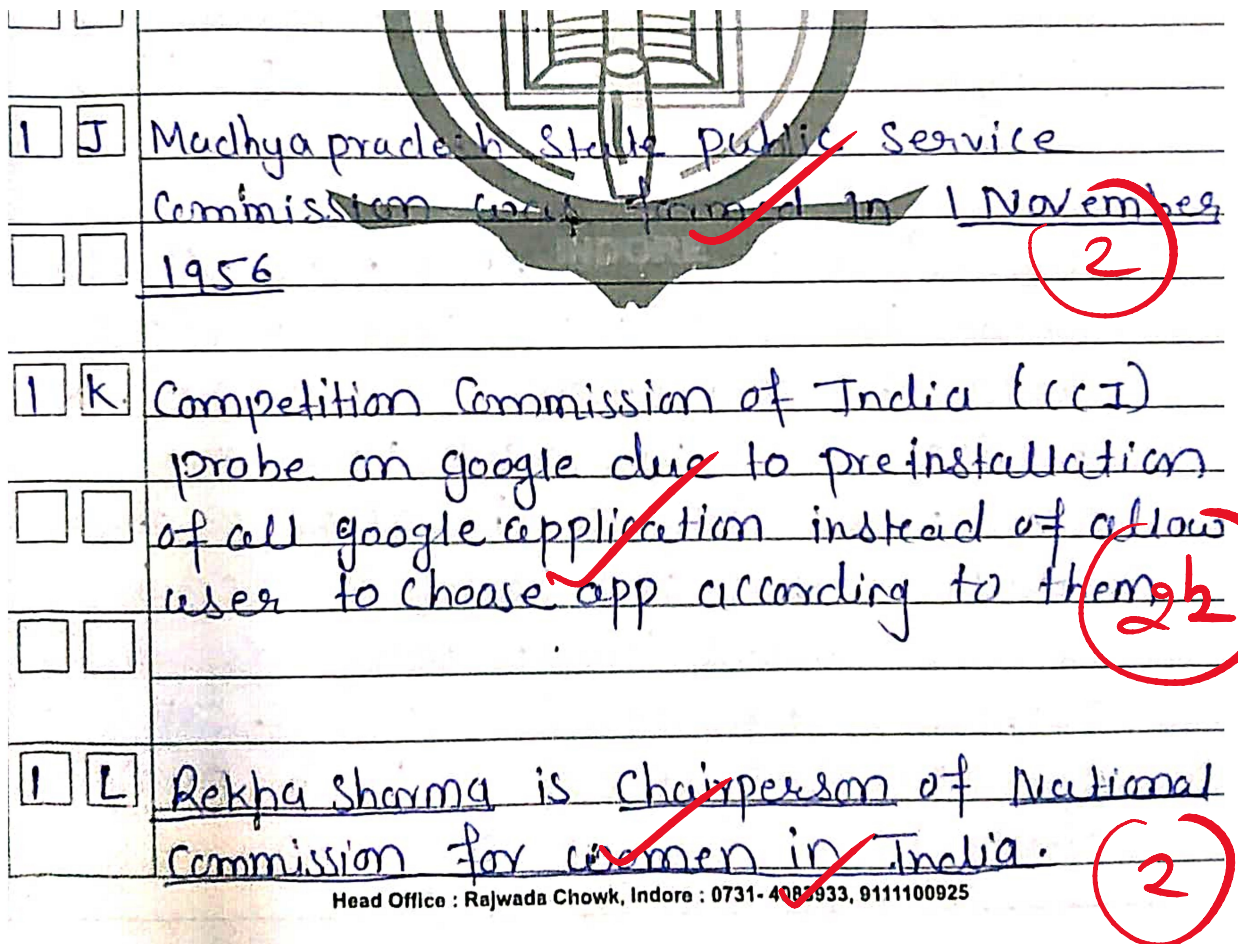 1 J Madhyapradesh State public Service
Commission was formed in 1 November
INDORE
2
1956
1 K Competition Commission of India (CCI)
probe on google due to preinstallation
of all google application instead of allow
user to choose app according to them
1 L Rekha Sharma is Chairperson of National
Commission for women in India.
2
Head Office : Rajwada Chowk, Indore : 0731- 4983933, 9111100925